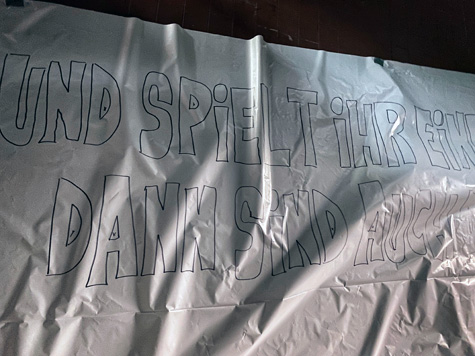 UND SPiELT iHR
DANN SiND AUCH